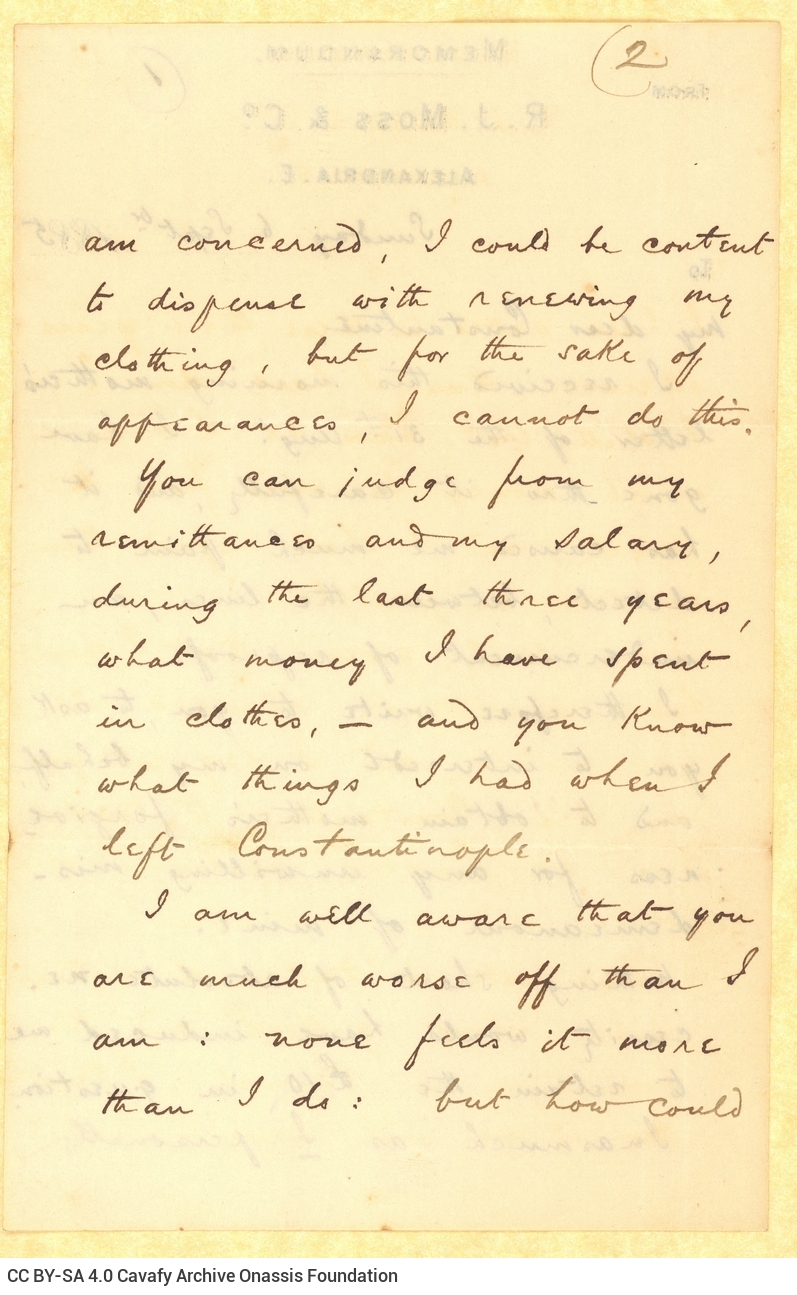 2
am concerned, I could be content
to dispense with renewing my
clothing, but for the sake of
appearances, I cannot do this.
You can judge from my
remittances and my salary,
during the last three years,
what money I have spent
in clothes, — and you know
what things I had when I
left Constantinople.
I am well aware that you
are much worse off than I
am : none feels it more
than I do : but how could
CC BY-SA 4.0 Cavafy Archive Onassis Foundation